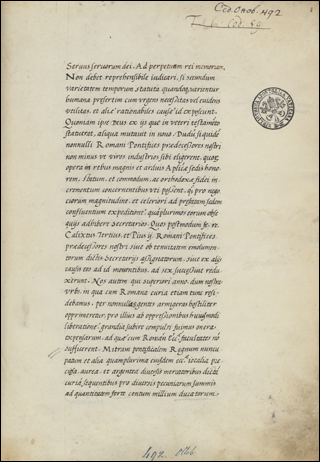 Cod. Ottob. 492
Seruus seruorum dei. Ad perpetuam rei memoriam
Non debet reprehensibile iudicari, si secundum
varietatem temporum statuta quandoq; varientur
humana presertim cum urgens necessitas vel euidens
utilitas, et aliæ rationabiles causæ id exposcunt.
Quoniam ipse deus ex ijs que in veteri testamento
statuerat, aliqua mutauit in nouo. Dudum siquidem
nonnulli Romani Pontifices prædecessores nostri
non minus ut viros industrios sibi eligerent, quorum
opera in rebus magnis et arduis Ap.licæ sedis hono-
rem, statum, et commodum, ac orthodoxæ fidei in
crementum concernentibus uti possent, qui pro nego
ciorum magnitudine, et celeriori ad præfatam sedem
confluentium expeditione, quamplurimis eorum obse
quijs adhibere Secretarios. Quos postmodum fe. re.
Calixtus Tertius, et Pius ij Romani Pontifices
prædecessores nostri siue ob tenuitatem emolumen-
torum dictis Secretarijs assignatorum, siue ex alijs
causis eos ad id mouentibus, ad sex successiue redu
xerunt. Nos autem qui superiori anno, dum nostra
urbs, in qua cum Romana curia etiam tunc resi-
debamus, per nonnullas gentes armigeras hostiliter
opprimeretur, pro illius ab oppressionibus huiusmodi
liberatione grandia subire compulsi fuimus onera
expensarum, ad quæ cum Romanæ Ecc.æ facultates non
sufficerent, Mitram pontificalem Regnum nuncu
patam et alia quamplurima eiusdem ecc.æ iocalia pre
ciosa, aurea, et argentea diuersis mercatoribus dictam
curiam sequentibus pro diuersis pecuniarum summis
ad quantitatem forte centum millium ducatorum
492 Ottob